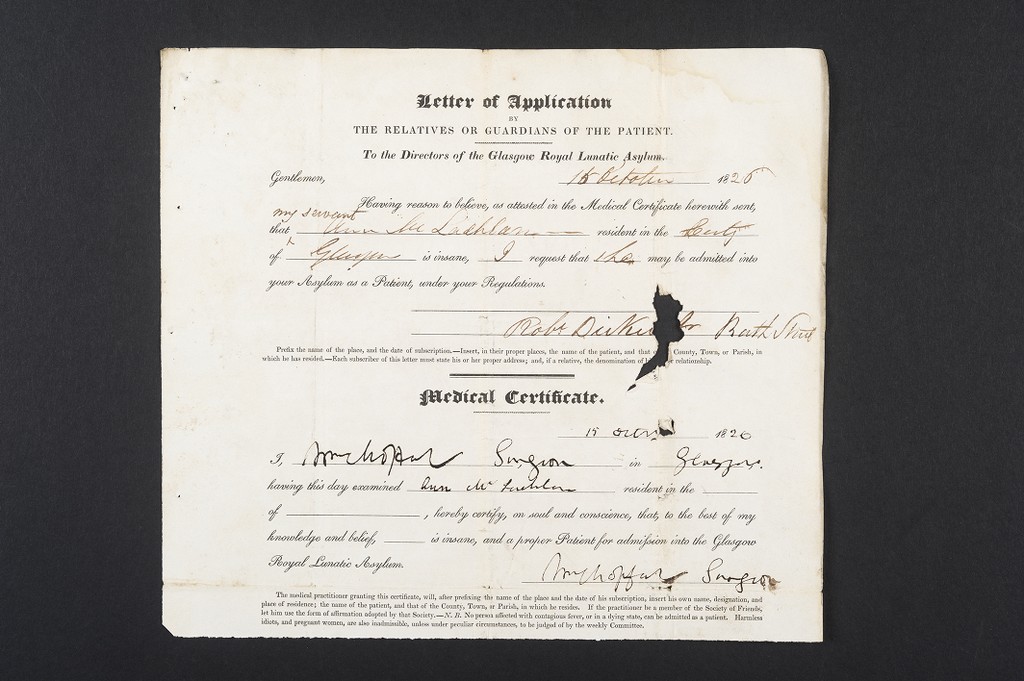 Letter of Application
BY
THE RELATIVES OR GUARDIANS OF THE PATIENT.
To the Directors of the Glasgow Royal Lunatic Asylum.
Gentlemen, 15 October 1826
Having reason to believe, as attested in the Medical Certificate herewith sent,
my servant
that Ann Mc Lachlan resident in the City
of Glasgow is insane, I request that she may be admitted into
your Asylum as a Patient, under your Regulations.
Robt Bath Street
Prefix the name of the place, and the date of subscription.—Insert, in their proper places, the name of the patient, and that County, Town, or Parish, in
which he has resided.—Each subscriber of this letter must state his or her proper address; and, if a relative, the denomination of relationship.
Medical Certificate.
15 1826
I, Wm Moffat Surgeon in Glasgow.
having this day examined Ann Mc Lachlan resident in the
of , hereby certify, on soul and conscience, that, to the best of my
knowledge and belief, is insane, and a proper Patient for admission into the Glasgow
Royal Lunatic Asylum.
Wm Moffat Surgeon
The medical practitioner granting this certificate, will, after prefixing the name of the place and the date of his subscription, insert his own name, designation, and
place of residence; the name of the patient, and that of the County, Town, or Parish, in which he resides. If the practitioner be a member of the Society of Friends,
let him use the form of affirmation adopted by that Society.—N. B. No person affected with contagious fever, or in a dying state, can be admitted as a patient. Harmless
idiots, and pregnant women, are also inadmissible, unless under peculiar circumstances, to be judged of by the weekly Committee.